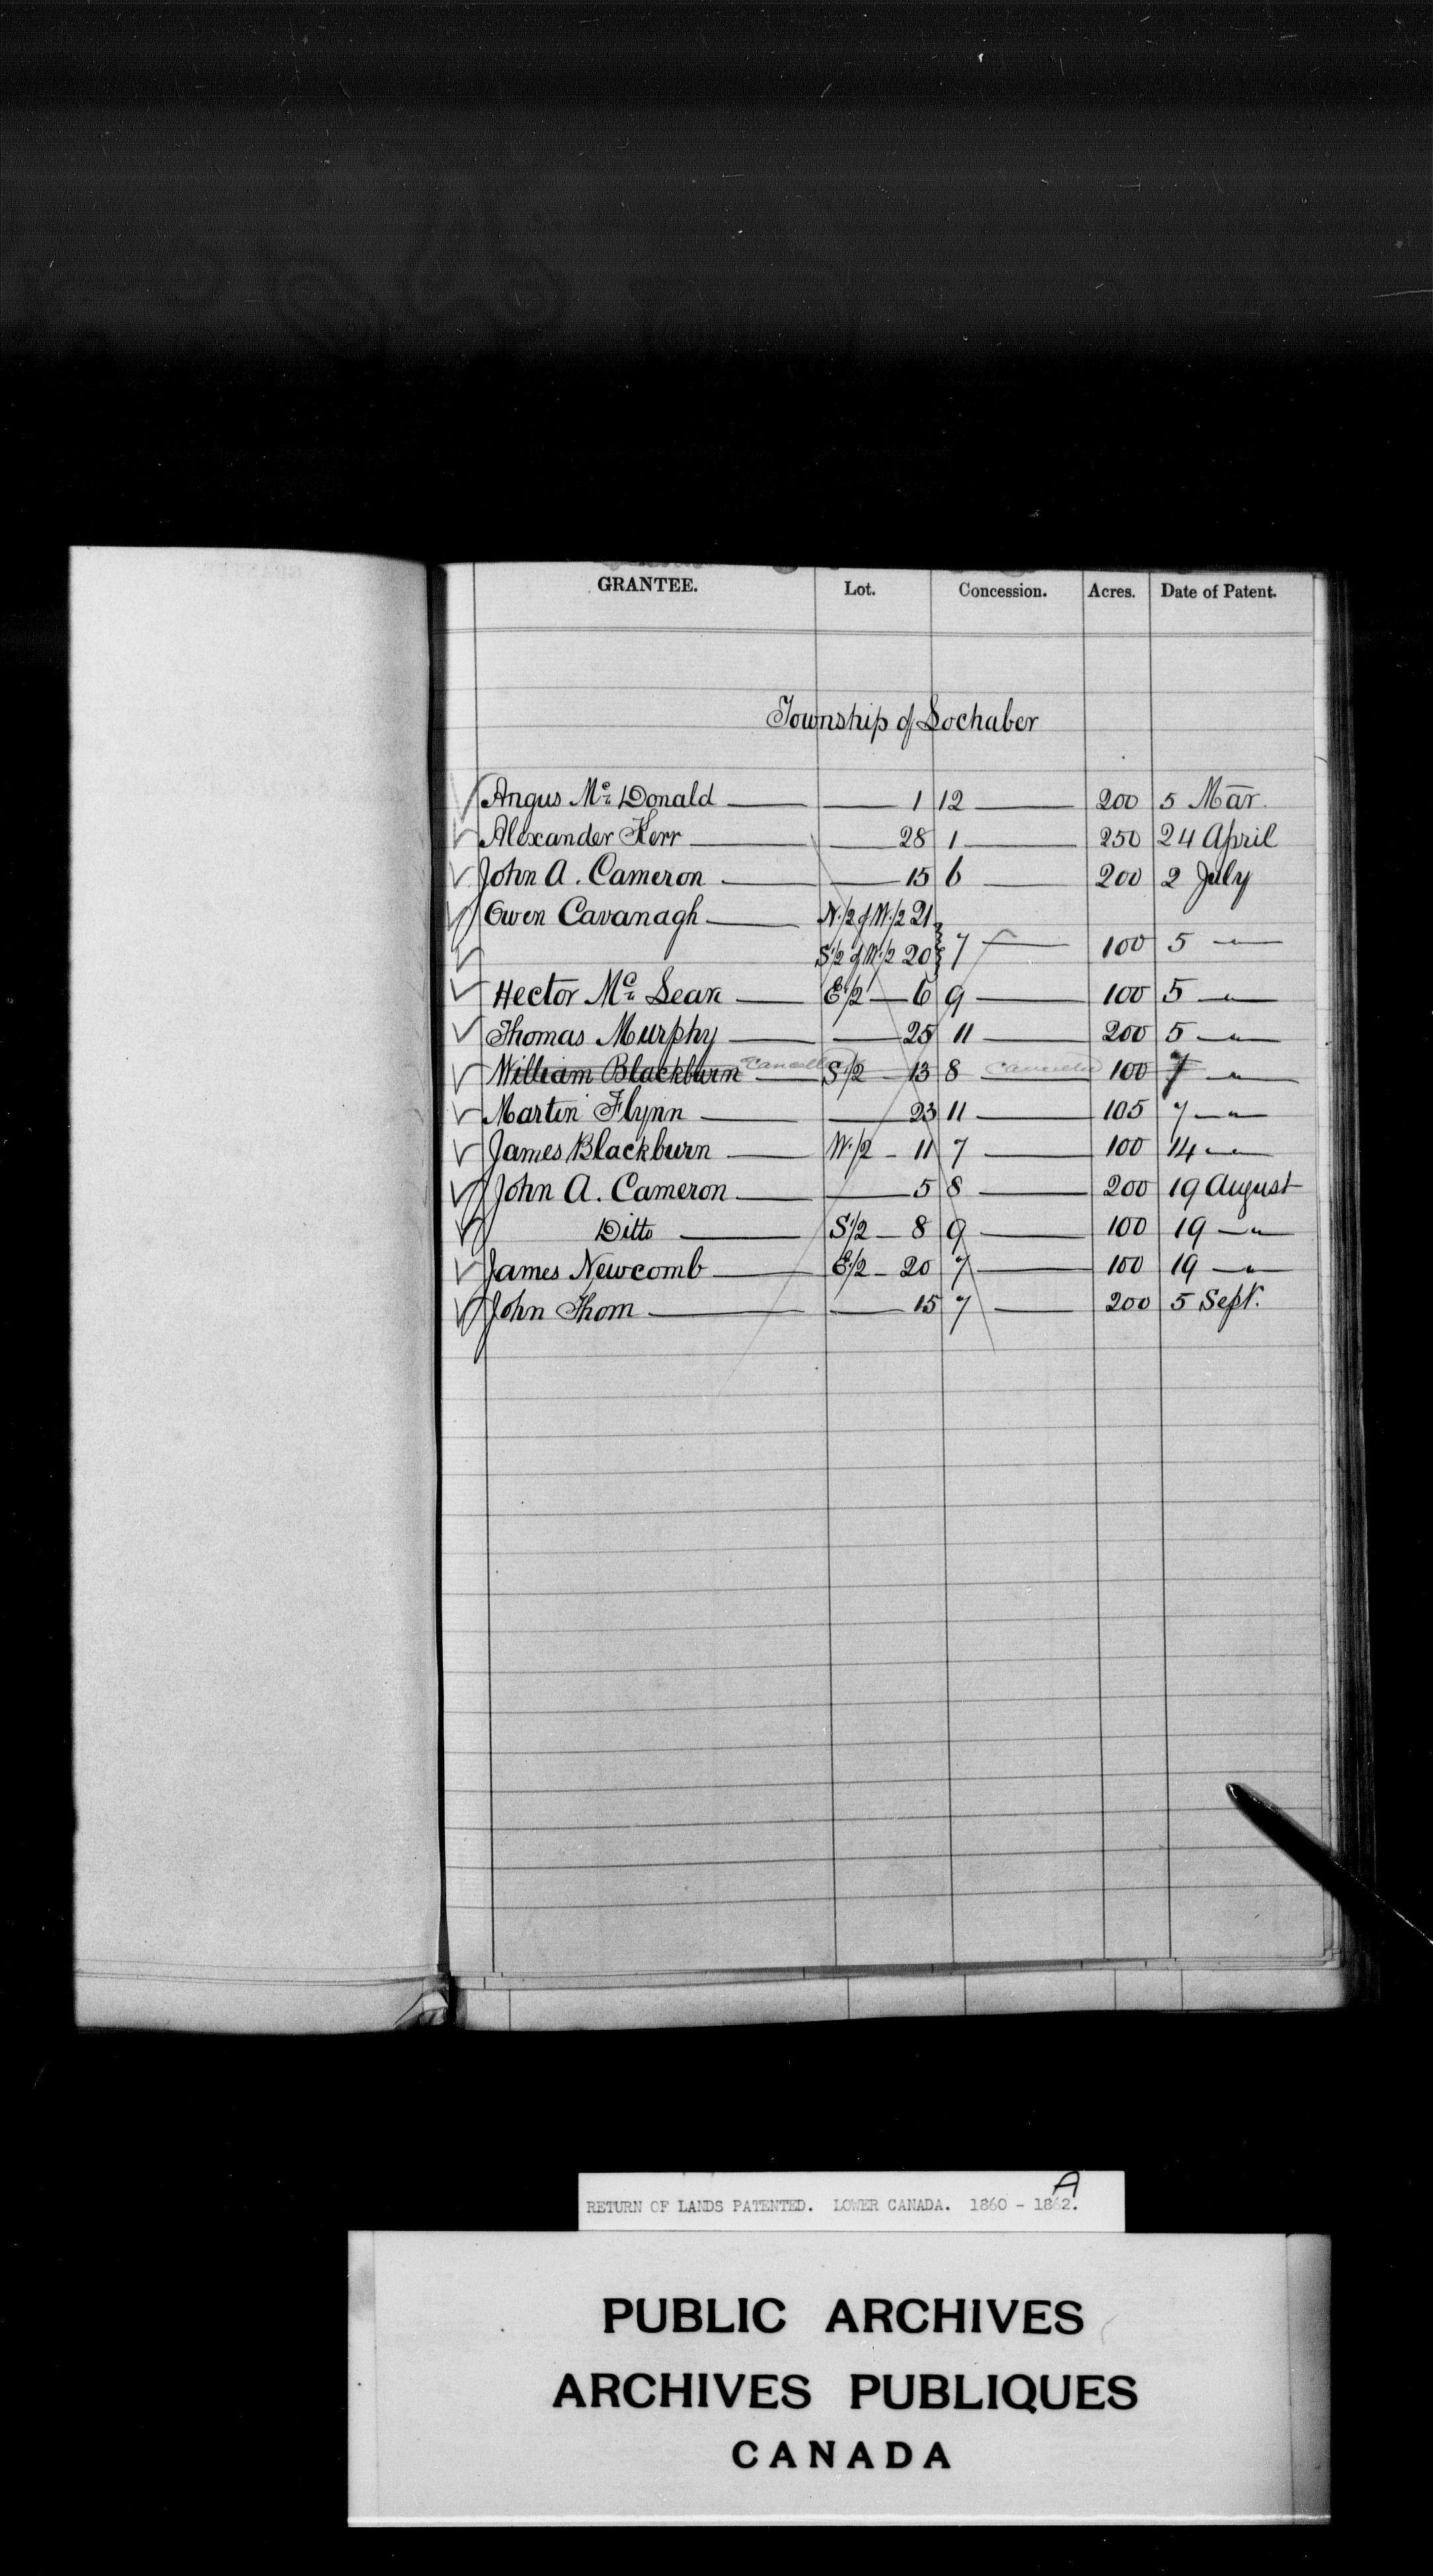 GRANTEE. Lot. Concession. Acres. Date of Patent.
Township of Lochaber
Angus Mc Donald — 1 12 — 200 5 Mar.
Alexander Kerr — 28 1 — 250 24 April
John A. Cameron — 15 6 — 200 2 July
Owen Cavanagh — N.1/2 of W.1/2 21
S1/2 of W.1/2 20 } 7 — 100 5 — "
Hector Mc Lean — E1/2 — 6 9 — 100 5 — "
Thomas Murphy — 25 11 — 200 5 — "
William Blackburn cancelled S1/2 — 13 8 cancelled 100 7 — "
Martin Flynn — 23 11 — 105 7 — "
James Blackburn — W.1/2 — 11 7 — 100 14 — "
John A. Cameron — 5 8 — 200 19 August
Ditto — S1/2 — 8 9 — 100 19 — "
James Newcomb — E1/2 — 20 7 — 100 19 — "
John Thom — 15 7 — 200 5 Sept.
A
RETURN OF LANDS PATENTED. LOWER CANADA. 1860 - 1862.
PUBLIC ARCHIVES
ARCHIVES PUBLIQUES
CANADA